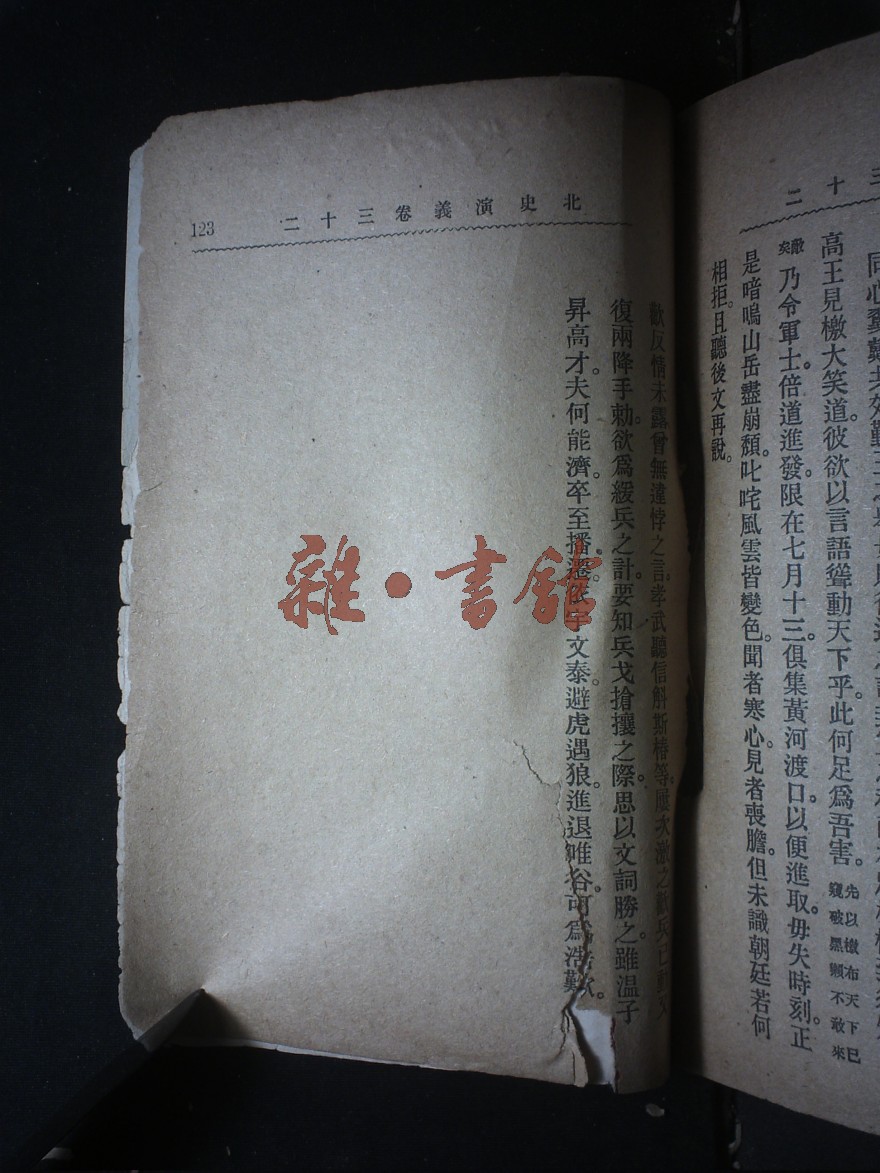 三十二
同心
高王見檄大笑道。彼欲以言語聳動天下乎。此何足爲吾害。先以檄布天下已窺破黑獺不敢來
敵矣乃令軍士倍道進發。限在七月十三。俱集黃河渡口以便進取。毋失時刻。正
是暗嗚山岳盡崩頹。叱咤風雲皆變色。聞者寒心。見者喪膽。但未識朝廷若何
相拒。且聽後文再說。
北史演義卷三十二
123
歡反情未露曾無違悖之言。孝武聽信斛斯椿等。屢次激之歡兵已動又
復兩降手勅。欲爲緩兵之計。要知兵戈搶攘之際。思以文詞勝之。雖温子
昇高才。夫何能濟。卒至播遷。依宇文泰。避虎遇狼。進退唯谷。可爲浩歎。
雜·書館